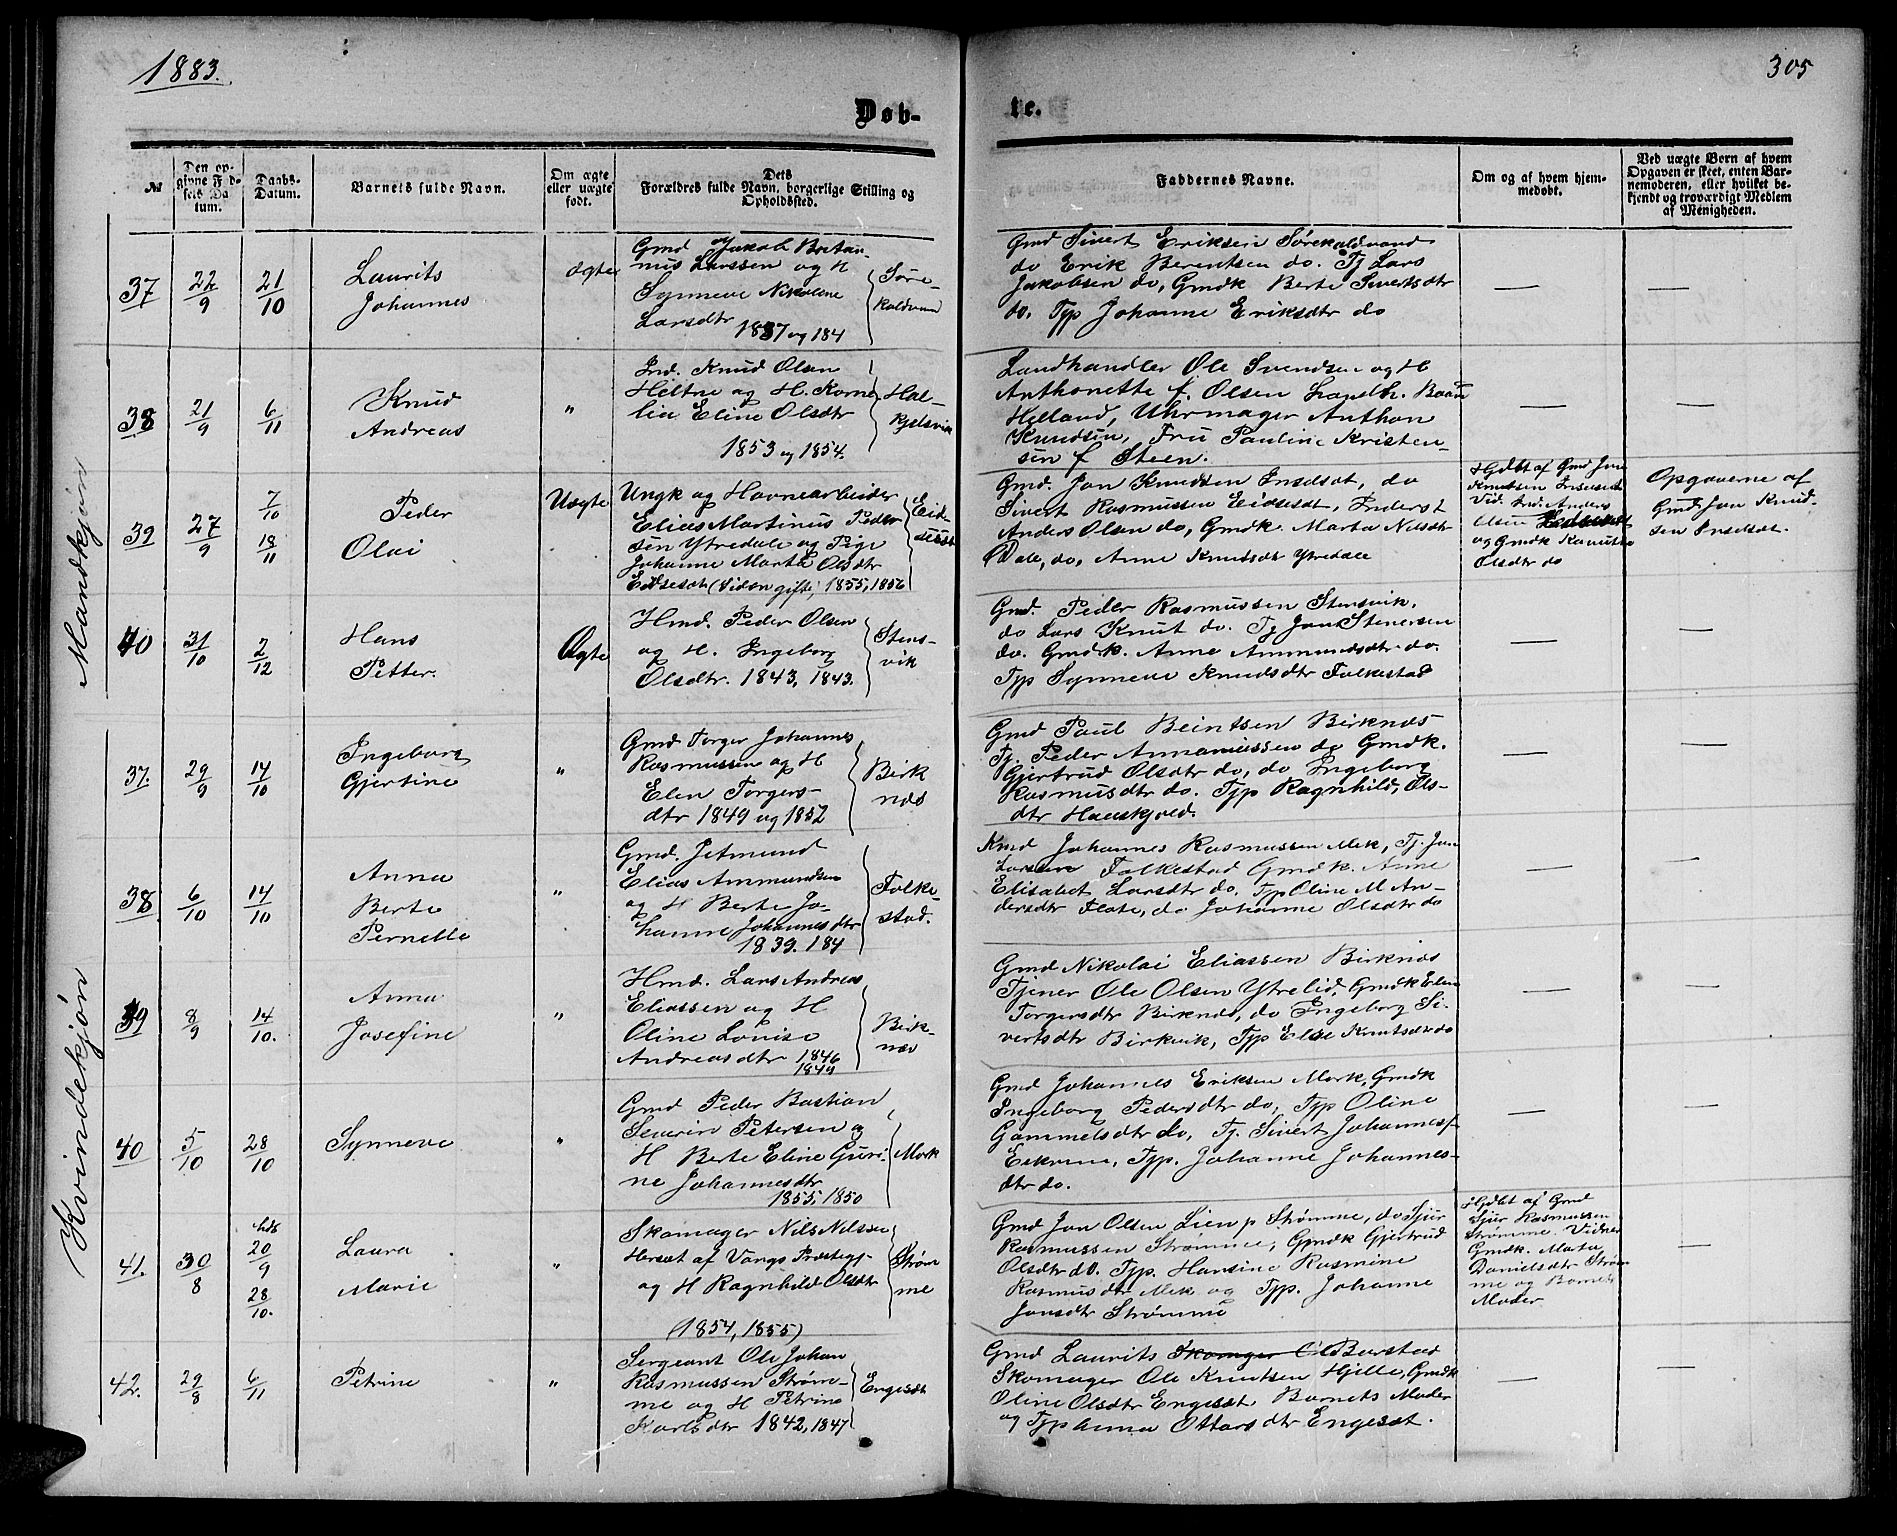 1883.
305
Døb-
te.
№
Den op-
givne Fød-
sels Da-
tum.
Daabs-
Datum.
Barnets fulde Navn.
Om ægte
eller uægte
født.
Dets
Forældres fulde Navn, borgerlige Stilling og
Opholdssted.
Faddernes Navne.
Om og af hvem hjem-
medøbt.
Ved uægte Børn af hvem
Opgaven er skeet, enten Bar-
nemoderen, eller hvilket be-
kjendt og troværdigt Medlem
af Menigheden.
Mandkjøn
37
22/9
21/10
Laurits
Johannes
ægte
Gmd Jakob
nus Larssen og H
Synneve Nikoline
Larsdtr
1837 og 184
Søre-
kaldvand
Gmd Sivert Eriksen Sørekaldvand
do Erik Berentsen do. Tj Lars
Jakobsen do, Gmdk Berte Sivertsdtr
do. Typ Johanne Eriksdtr do
—
—
38
21/9
6/11
Knud
Andreas
"
Ind. Knud Olsen
Heltne og H. Korne-
lia Eline Olsdtr
1853 og 1854.
Hal-
kjelsvik
Landhandler Ole Svendsen og H
Anthonette f. Olsen Landh.
Helland, Uhrmager Anthon
Knudsen, Fru Pauline Kristen-
sen f Steen.
—
—
39
27/9
7/10
18/11
Peder
Olai
Uægte
Ungk og Havnearbeider
Elias Martinus Peder-
sen Ytredale og Pige
Johanne Marta Olsdtr
Eidseset (Siden gifte) 1855, 1856
Eid-
seset
Gmd. Jon Knudsen Inselset, do
Sivert Rasmussen Eidseset, Inderst
Anders Olsen do, Gmdk. Marta Nilsdtr
Dale, do, Anne Knudsdtr Ytredale
Hjdbt af Gmd Jon
Knudsen Inselset
Vid. Ind. Anders
Olsen
og Gmdk
Olsdtr do
Opgaverne af
Gmd Jon Knud-
sen Inselset.
40
31/10
2/12
Hans
Petter.
Ægte
Hmd. Peder Olsen
og H. Ingeborg
Olsdtr. 1843, 1843.
Stens-
vik
Gmd. Peder Rasmussen Stensvik,
do Lars Knut do. Tj Jon Stenersen
do. Gmdk. Anne Ammundsdtr do.
Typ Synneve Knudsdtr Folkestad
—
—
Kvindekjøn
37.
29/9
14/10
Ingeborg
Gjertine
"
Gmd Torger Johannes
Rasmussen og H
Elen Torgers-
dtr 1849 og 1852
Birk
nes
Gmd Paul Beintsen Birknes
Tj. Peder Annaniassen do Gmdk.
Gjertrud Olsdtr do, do Ingeborg
Rasmusdtr do. Typ Ragnhild, Ols-
dtr Haaskjold.
—
—
38
6/10
14/10
Anna
Berte
Pernelle
"
Gmd. Jetmund
Elias Ammundsen
og H Berte Jo-
hanne Johannesdtr
1839. 184
Folke
stad.
Kmd Johannes Rasmussen Mek, Tj. Jon
Larsen Folkestad Gmdk. Anne
Elisabet Larsdtr do, Typ Oline M An-
dersdtr Flote, do Johanne Olsdtr do
—
—
39
8/9
14/10.
Anna
Josefine
"
Hmd. Lars Andreas
Eliassen og H
Oline Lovise
Andreasdtr 1846
1849
Birk-
nes
Gmd Nikolai Eliassen Birknes
Tjener Ole Olsen Ytrelid, Gmdk Elen
Torgersdtr Birknes, do Ingeborg Si-
vertsdtr Birkvik, Typ Else Knutsdtr do
—
—
40
5/10
28/10
Synneve
"
Gmd Peder Bastian
Severin Petersen og
H Berte Eline Guri-
ne Johannesdtr
1855, 1850
Mork
Gmd Johannes Eriksen Mork, Gmdk
Ingeborg Pedersdtr do, Typ Oline
Gammelsdtr do, Tj. Sivert Johannes
Eskrine, Typ. Johanne Johannes-
dtr do.
—
—
41.
30/8
hdb
20/9
28/10.
Laura
Marie
"
Skomager Nils Nilssen
Herset af Vangs Præstegj-
og H Ragnhild Olsdtr
(1854, 1855)
Strøm
me
Gmd Jon Olsen Lien p Strømme, do Sjur
Rasmussen Strømme, Gmdk Gjertrud
Olsdtr do. Typ. Hansine Rasmine
Rasmusdtr Mek og Typ. Johanne
Jonsdtr Strømme
Hjdbt af Gmd
Sjur Rasmussen
Strømme, Vidner
Gmdk. Marta
Danielsdtr Strøm-
me og Barnets
Moder
—
42.
29/8
6/11
Petrine
"
Sergeant Ole Johan
Rasmussen Strøm-
me og H Petrine
Karlsdtr 1842, 1847
Engeset
Gmd Laurits Skomager Ol Barstad
Skomager Ole Knutsen Hjelle, Gmdk
Oline Olsdtr Engeset, Barnets Moder
og Typ Anna Ottarsdtr Engeset.
—
—